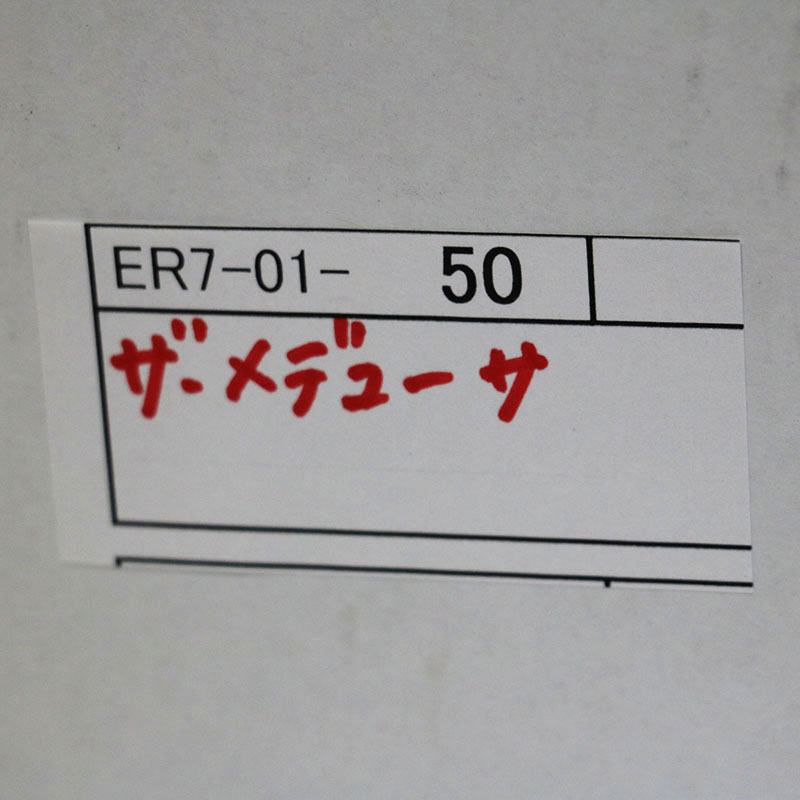 ER7-01- 50
ザ・メデューサ